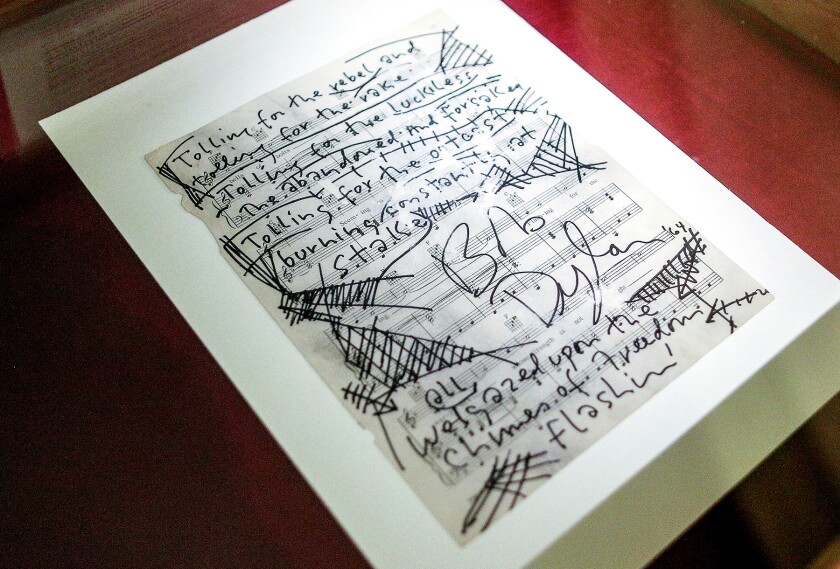 Tolling for the rebel and
tolling for the rake
Tolling for the luckless
the abandoned and forsaken
Tolling for the outcast
burning constantly at
stake
Bob
Dylan '64
all,
we gazed upon the
chimes of freedom
flashin'